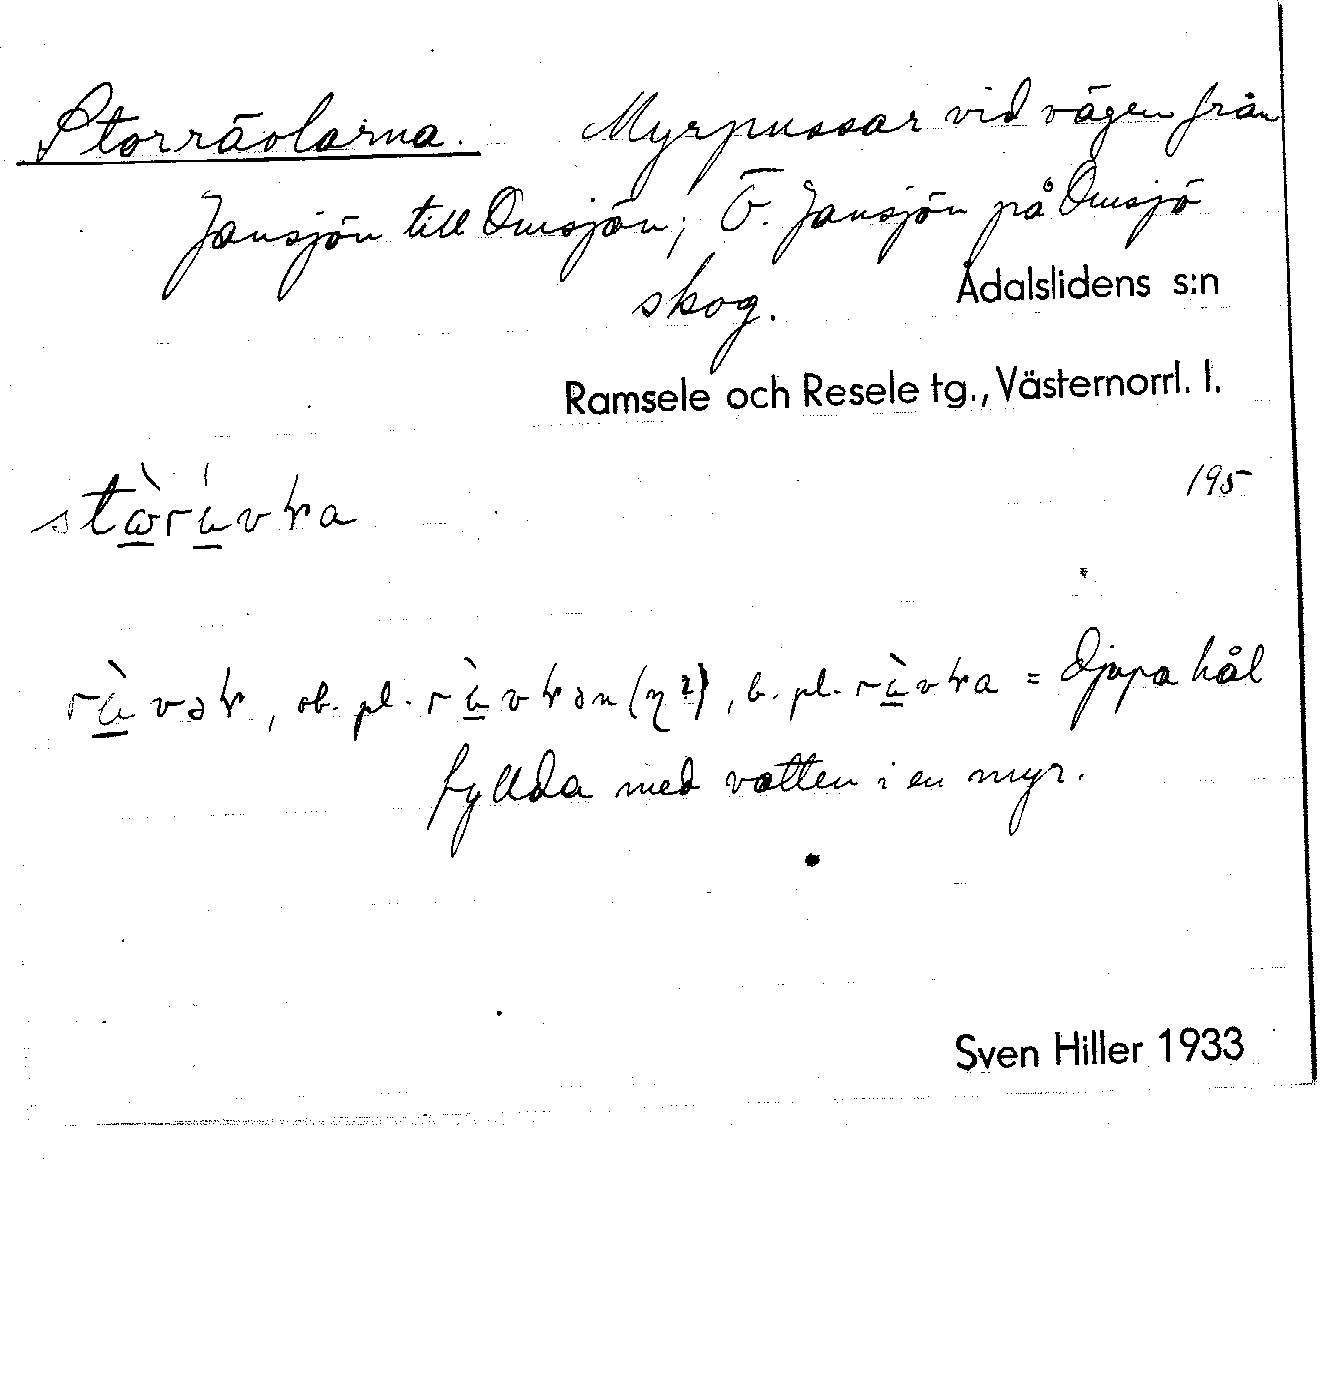 Storrävlarna. Myrpussar vid vägen från
Jansjön till Omsjön; Ö. Jansjön på Omsjö
skog.
Ådalslidens s:n
Ramsele och Resele tg., Västernorrl. l.
195
ob. pl. b. pl. = djupa hål
fyllda med vatten i en myr.
Sven Hiller 1933